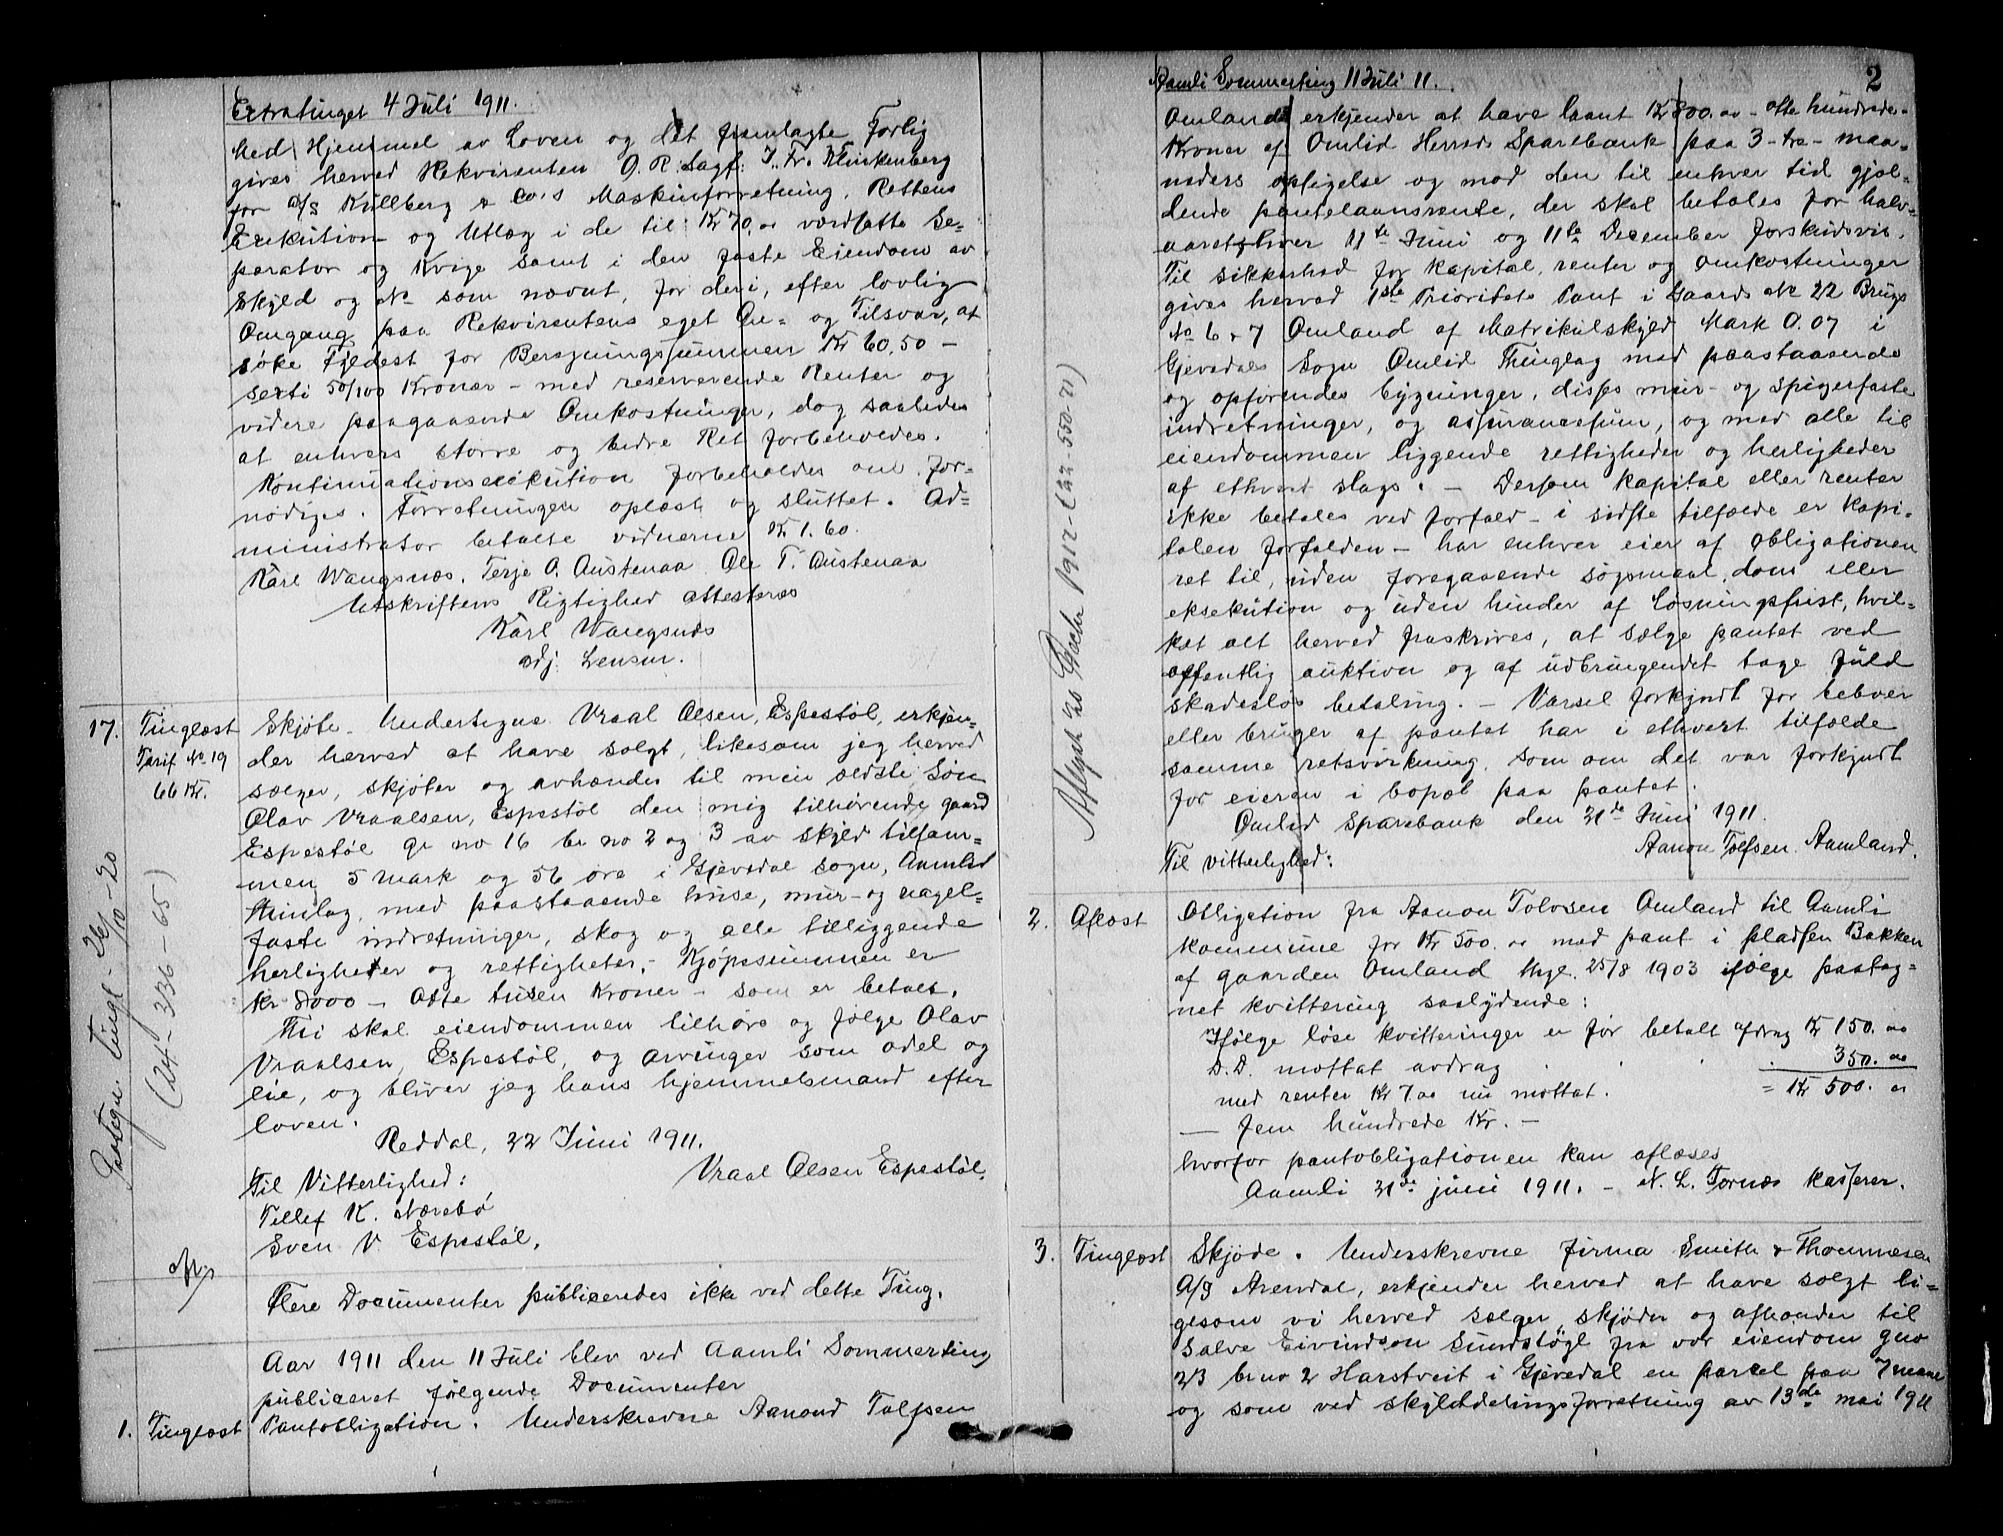 Extratinget 4 Juli 1911.
Med Hjemmel av Loven og det fremlagte Forlig
gives herved Rekvirenten O. R. Sagf. J. Fr. Klinkenberg
for A/S Kullberg & Co's Maskinforretning, Rettens
Exekution og Utlæg i de til Kr 70,00 værdsatte Se-
parator og Kvige samt i den faste Eiendom av
Skyld og No som nævnt, for deri, efter lovlig
Omgang paa Rekvirentens eget An- og Tilsvar, at
søke Fyldest for Beregningssummen Kr 60,50 –
sexti 50/100 Kroner – med resserverende Renter og
videre paagaaende Omkostninger, dog saaledes
at enhvers større og bedre Ret forbeholdes.
Kontinuationsexekution forbeholdes om for-
nødiges. Forretningen oplæst og sluttet. Ad-
ministrator betalte vidnerne Kr 1.60.
Karl Wangsnæs, Terje O. Austenaa Ole T. Austenaa
Utskriftens Rigtighed attesteres
Karl Wangsnæs
adj. Lensm.
17. Tinglæst
Tarif No 19
66 Kr.
Skjøte. Undertegne Vraal Olsen, Espestøl, erkjen-
der herved at have solgt, likesom jeg herved
sælger, skjøter og avhænder til min ældste Søn
Olav Vraalsen, Espestøl den mig tilhørende gaard
Espestøl gr no 16 br no 2 og 3 av skjld tilsam-
men 5 mark og 56 øre i Gjøvdal sogn, Aamlid
thinlag, med paastaaende huse, mur- og nagel-
faste indretninger, skog og alle tilliggende
herligheter og rettigheter. – Kjøpesummen er
kr 8000 – Otte tusen Kroner – som er betalt.
Thi skal eiendommen tilhøre og følge Olav
Vraalsen, Espestøl, og arvinger som odel og
eie, og bliver jeg hans hjemmelsmand efter
loven.
Reddal, 22 Juni 1911.
Vraal Olsen Espestøl.
Til Vitterlighed:
Tellef K. Nærebø
Sven V. Espestøl.
Paategn. tingl. 26/10-20
(24-336-65)
Flere Documenter publiceredes ikke ved dette Ting.
Aar 1911 den 11 Juli blev ved Aamli Sommerting
publiceret følgende Documenter
1. Tinglæst Pantobligation. Underskrevne Aanond Tolfsen
Aamli Sommerting 11 Juli 11.
2
Omland erkjender at have laant Kr 800.00 – otte hundrede-
Kroner af Omlid Herreds Sparebank paa 3-tre-maa-
neders opsigelse og mod den til enhver tid gjæl-
dende pantelaansrente, der skal betales for halv-
aaret hver 11te Juni og 11te December forskudsvis.
Til sikkerhed for kapital, renter og omkostninger
gives herved 1ste Prioritets Pant i Gaards No 22 Brugs
No 6 & 7 Omland af Matrikulskyld Mark 0.07 i
Gjøvedals Sogn Omlid Thinglag med paastaaende
og opførendes bygninger, disses mur- og spigerfaste
indretninger, og assurancesum, og med alle til
eiendommen liggende rettigheder og herligheder
af ethvert slags. – Dersom kapital eller renter
ikke betales ved forfald – i sidste tilfælde er kapi-
talen forfalden – har enhver eier af obligationen
ret til, uden foregaaende søgsmaal, dom eller
eksekution og uden hinder af løsningsfrist, hvil-
ket alt herved fraskrives, at sælge pantet ved
offentlig auktion og af udbringendet tage fuld
skadesløs betaling. – Varsel forkyndt for beboer
eller bruger af pantet har i ethvert tilfælde
samme retsvirkning, som om det var forkyndt
for eieren i bopæl paa pantet.
Omlid Sparebank den 21de Juni 1911
Aanon Tolfsen Aamland.
Til vitterlighed:
1912 (22-550-71)
2. Aflæst
Obligation fra Aanon Tolvsen Omland til Aamli
kommune for Kr 500.00 med pant i pladsen Bakken
af gaarden Omland thgl. 25/8 1903 ifølge paateg-
net kvittering saalydende:
Ifølge løse kvitteringer er før betalt afdrag Kr 150.00
D.D. mottat avdrag 350.00
med renter Kr 7.00 nu mottat. = Kr 500.00
– fem hundrede Kr. –
hvorfor pantobligationen kan aflæses
Aamli 21de juni 1911. – N. L. Tornæs kasserer.
3. Tinglæst
Skjøde. Underskrevne firma Smith & Thommesen
A/S Arendal, erkjender herved at have solgt li-
gesom vi herved sælger, skjøder og afhænder til
Salve Eivindson Sundstøyl fra vor eiendom gno
23 brno 2 Harstveit i Gjøvedal en parcel paa
og som ved skylddelingsforretning av 13de mai 1911